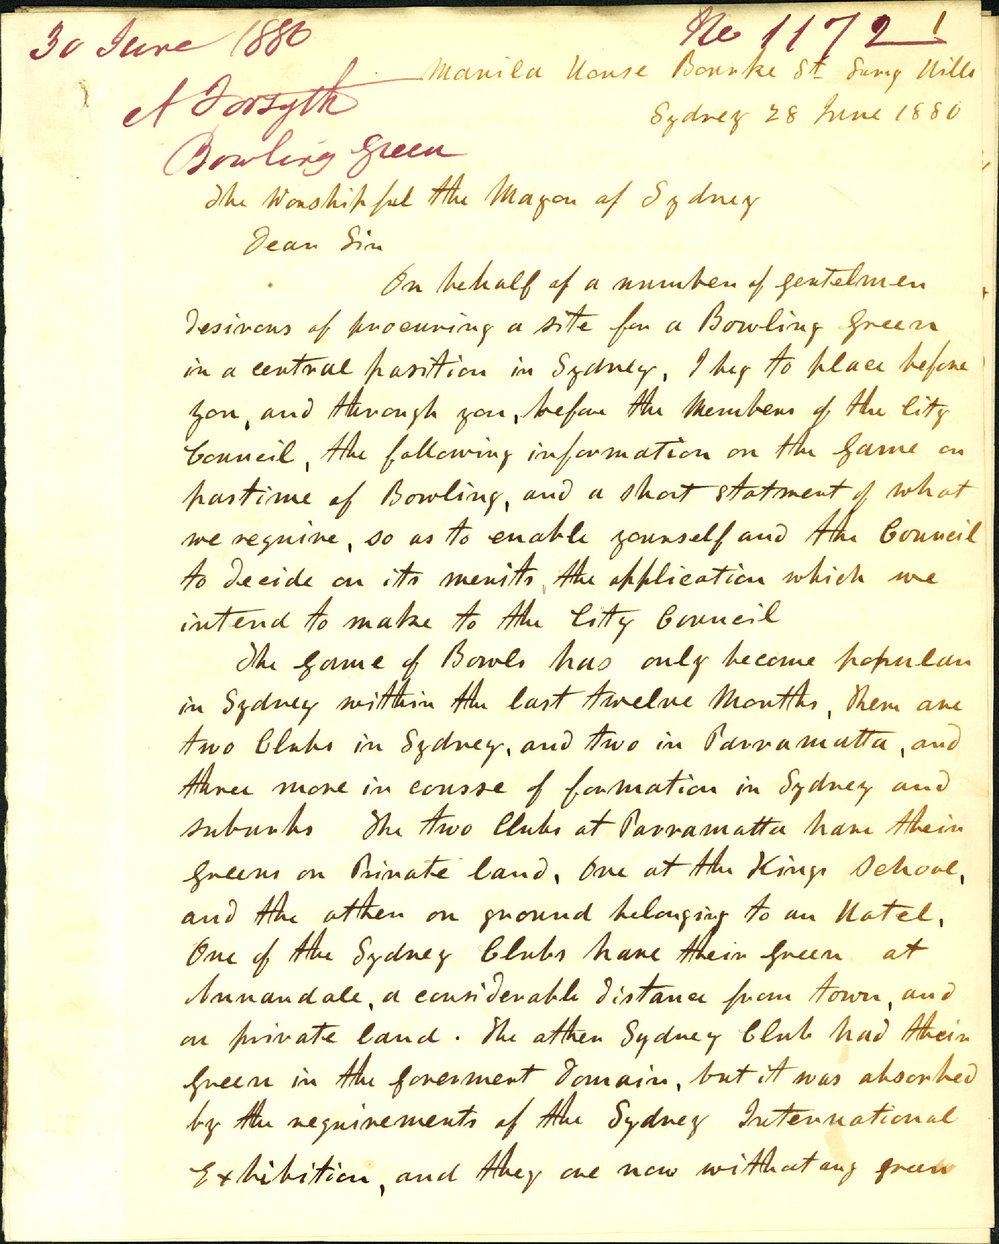 30 June 1880
No 1172 1
A Forsyth
Manila House Bourke St Surry Hills
Sydney 28 June 1880
Bowling Green
The Worshipful the Mayor of Sydney
Dear Sir
On behalf of a number of gentelmen
desirous of procuring a site for a Bowling Green
in a central position in Sydney, I beg to place before
you, and through you, before the Members of the City
Council, the following information on the Game or
pastime of Bowling, and a short statment of what
we require, so as to enable yourself and the Council
to decide on its merits, the application which we
intend to make to the City Council
The Game of Bowls has only become popular
in Sydney within the last twelve Months, There are
two Clubs in Sydney, and two in Parramatta, and
three more in course of formation in Sydney and
suburbs The two Clubs at Parramatta have their
Greens on Private land, One at the Kings School,
and the other on ground belonging to an Hotel,
One of the Sydney Clubs have their Green at
Annandale, a considerable distance from town, and
on private land. The other Sydney Club had their
Green in the Goverment Domain, but it was absorbed
by the requirements of the Sydney International
Exhibition, and they are now without any green